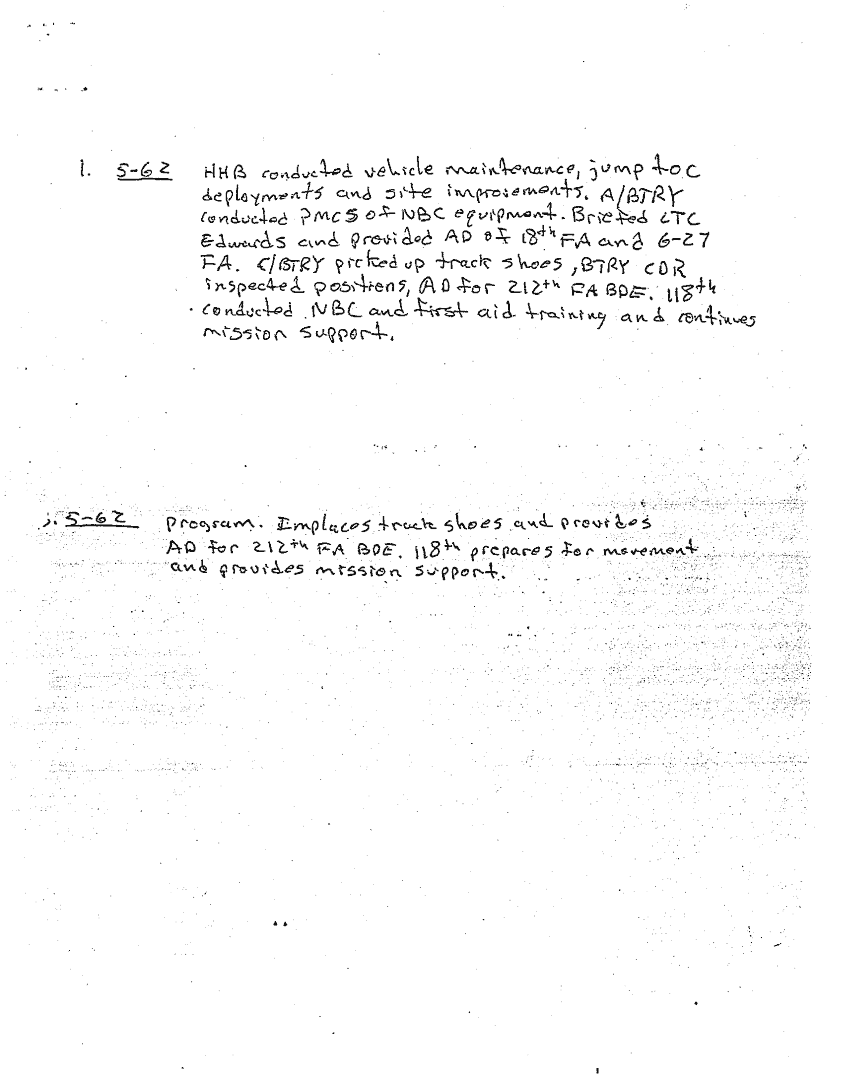 1. 5-62 HHB conducted vehicle maintenance, jump toc
deployments and site improvements. A/BTRY
conducted PMCS of NBC equipment. Briefed LTC
Edwards and provided AD of 18th FA and 6-27
FA. C/BTRY picked up track shoes, BTRY CDR
inspected positions, AD for 212th FA BDE. 118th
conducted NBC and first aid training and continues
mission support.
j. 5-62 program. Emplaces track shoes and provides
AD for 212th FA BDE. 118th prepares for movement
and provides mission support.